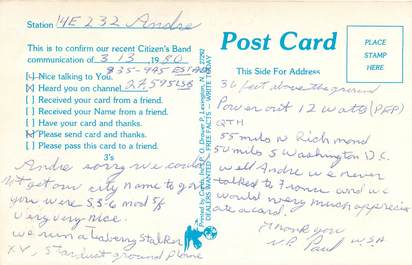 Station 14E 232 Andre
This is to confirm our recent Citizen's Band
communication of 3 13 1980
Nice talking to You.
Heard you on channel 27,595 LSB
Received your card from a friend.
Received your Name from a friend.
Have your card and thanks.
Please send card and thanks.
Please pass this card to a friend.
3's
Andre sorry we could
not get our city name to you
you were S5-6 mod 5/5
very very nice.
we run a
XV, Stardust ground plane
Printed by Cards, P.O. Drawer P, Lexington, N.C. 27292
DEALERS WANTED - FREE FACTS - WRITE TODAY
Post Card
PLACE
STAMP
HERE
This Side For Address
36 feet above the ground
Power out 12 watts (PEP)
QTH
55 miles N Richmond
50 miles S Washington D.C.
well Andre we never
talked to France and we
would very much apprecia
ate a card.
Thank you
Paul USA